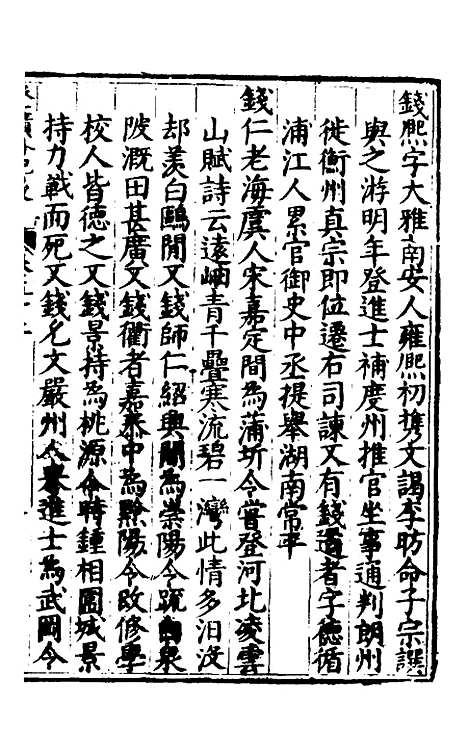 錢熙字大雅南安人雍熙初攜文謁李昉命子宗諤
與之游明年登進士補度州推官坐事通判朗州
徙衡州真宗即位遷右司諫又有錢遹者字德循
浦江人累官御史中丞提舉湖南常平
錢仁老海虞人宋嘉定間為蒲圻令嘗登河北凌雲
山賦詩云遠岫青千疊寒流碧一灣此情多汨沒
却羡白鷗閒又錢師仁紹興間為崇陽令疏白泉
陂溉田甚廣又錢衢者嘉泰中為黔陽令改修學
校人皆德之又錢景持為桃源令時鍾相圍城景
持力戰而死又錢允文嚴州人舉進士為武岡令